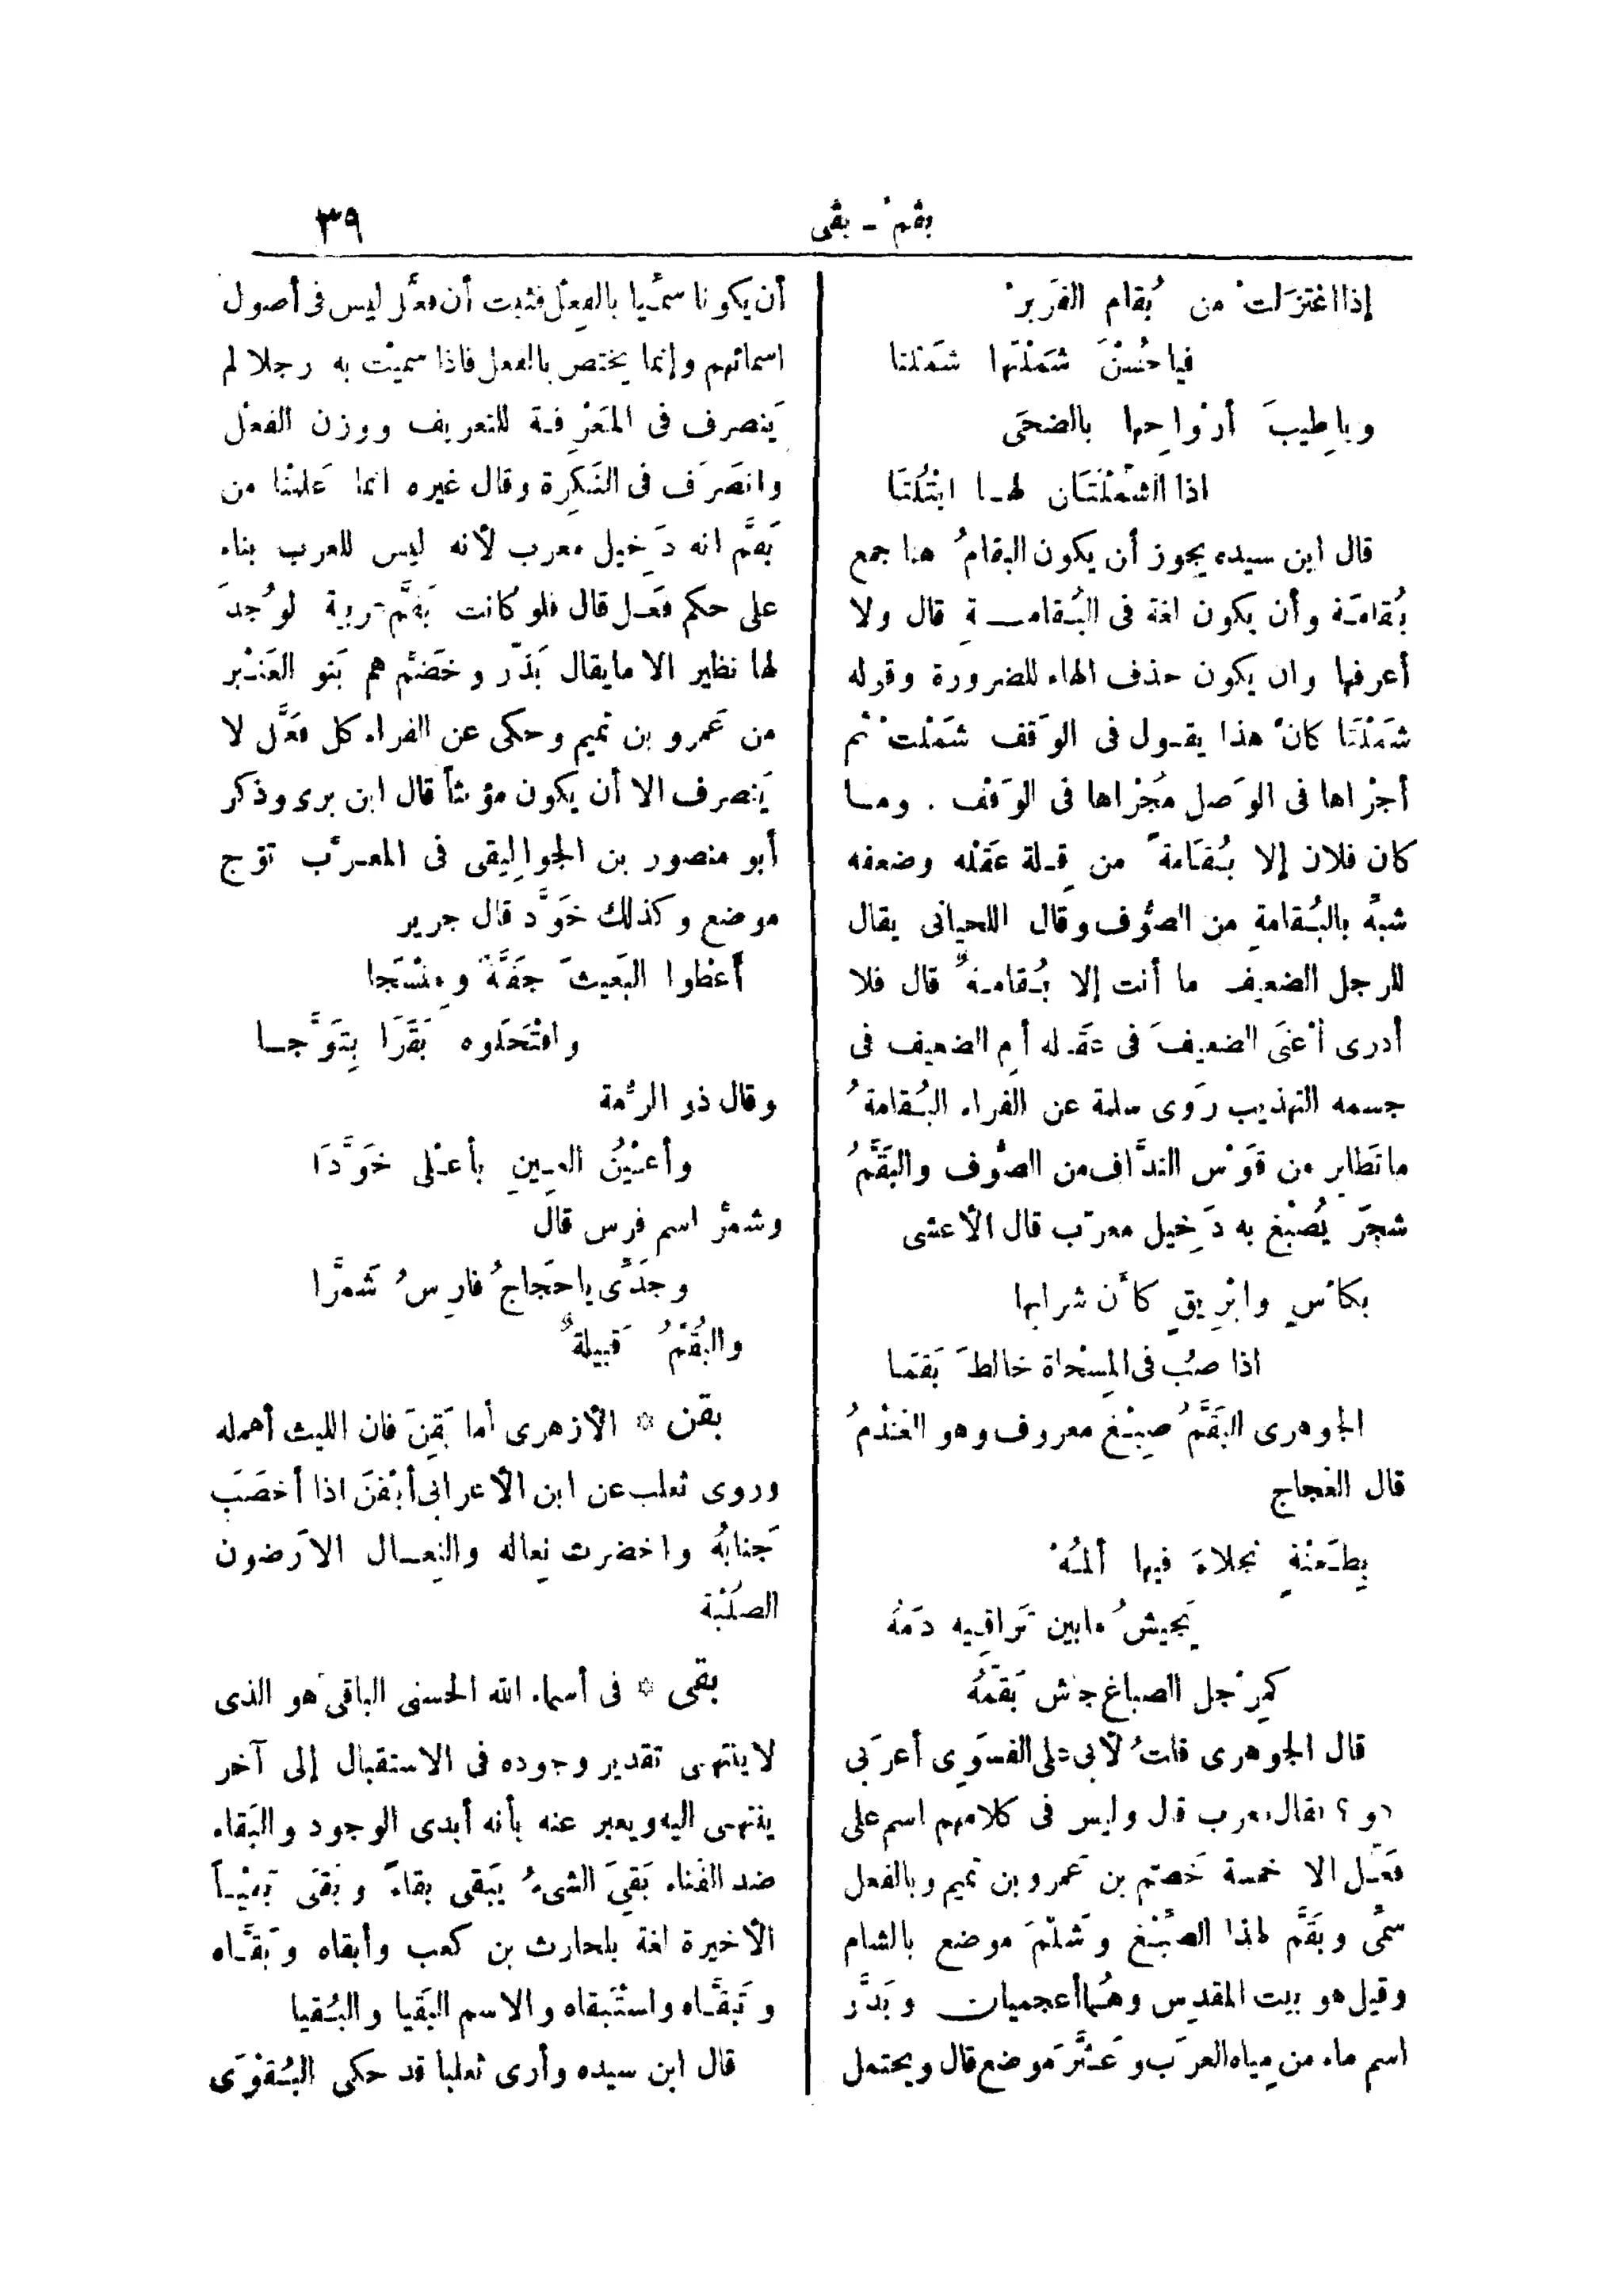 بقم - بقى
٣٩
إذا اغتزلت من بُقام الفَرير
فيا حُسْنَ شَمْلَتِها شَمْلتا
ويا طِيبَ أرْواحِها بالضحَى
اذا الشمْلَتَان لهـا ابْتُلتَا
قال ابن سيده يجوز أن يكون البقامُ هنا جمع
بُقامَة وأن يكون لغة فى البُقامـة قال ولا
أعرفها وان يكون حذف الهاء للضرورة وقوله
شَمْلَتَا كانْ هذا يقـول فى الوَقف شَمْلتْ ثم
أجْراها فى الوَصل مَجْراها فى الوَقف . ومـا
كان فلان إلا بُقَامةً من قِلة عَقْله وضعفه
شبَّه بالبُقامةِ من الصُّوف وقال اللحيانى يقال
للرجل الضعيف ما أنت إلا بُقامـةٌ قال فلا
أدرى أعْنَى الضعيفَ فى عَقْله أم الضعيف فى
جسمه التهذيب رَوى سلمة عن الفراء البُقامةُ
ما تَطاير من قَوْس الندَّاف من الصُّوف والبَقَّمُ
شجَرٌ يُصْبَغ به دَخِيل معرّب قال الأعشى
بكأسٍ وابْرِيقٍ كأن شرابها
اذا صُب فى المِسْحاة خالطَ بَقمَا
الجوهرى البَقَّمُ صِبْغ معروف وهو العَنْدَمُ
قال العجاج
بِطَعْنةٍ نجلاءَ فيها ألمُهْ
يَجيشُ مابين تَراقِيه دَمُهْ
كمِرْجل الصباغ جاش بَقَّمُهْ
قال الجوهرى قلتُ لأبى على الفسَوى أعرَبى
هو ؟ فقال معرب قال وليس فى كلامهم اسم على
فَعَّل الا خمسة خَضّم بن عَمرو بن تميم وبالفعل
سمِّى وبَقَّم لهذا الصِّبْغ وشَلَّمَ موضع بالشام
وقيل هو بيت المقدس وهُما أعجميان وبَذَّر
اسم ماء من مِياه العرَب وعَثَّرَ موضع قال ويحتمل
أن يكونا سمِّيا بالفِعْل فثبت أن فعَّل ليس فى أصول
اسمائهم وإنما يختص بالفعل فاذا سميْت به رجلا لم
يَنصرف فى المَعْرِفـة للتعريف ووزن الفعْل
وانصَرَف فى النَكِرة وقال غيره انما عَلمْنا من
بَقَّم انه دَخيل معرب لأنه ليس للعرب بناء
على حكم فَعَّل قال فلو كانت بَقَّم عربية لوُجدَ
لها نظير الا مايقال بَذَّر وخَضَّم هم بَنو العَنْبر
من عَمرو بن تميم وحكى عن الفراء كل فَعَّل لا
يَنصرف الا أن يكون مؤنثاً قال ابن برى وذكر
أبو منصور بن الجواليقى فى المعرَّب توَّج
موضع وكذلك خَوَّد قال جرير
أَعْطوا البَعيثَ جَفَّةً ومِنْسَجا
وافْتَحَلوه بَقَرًا بِتَوَّجـا
وقال ذو الرُّمة
وأعيُنُ العِينِ بأعْلى خَوَّدَا
وشمَّر اسم فرس قال
وجَدِّى ياحَجاجُ فارِسُ شَمَّرا
والبُقُمُ قَبيلةٌ
بقن * الأزهرى أما بَقِنَ فان الليث أهمله
وروى ثعلب عن ابن الأعرابى أبْقَنَ اذا أخصَبَ
جَنابُه واخضرت نِعاله والنِعـال الأرَضون
الصلْبة
بقى * فى أسماء الله الحسنى الباقى هو الذى
لا ينتهى تقدير وجوده فى الاستقبال إلى آخر
ينتهى اليه ويعبر عنه بأنه أبدى الوجود والبَقاء
ضد الفَناء بَقِىَ الشىءُ يَبْقى بقاءً وبَقَى بَقْيـاً
الأخيرة لغة بلحارث بن كعب وأبقاه وبَقَّـاه
وتَبقَّـاه واستَبقاه والاسم البَقيا والبُقيا
قال ابن سيده وأرى ثعلبا قد حكى البُقْوَى